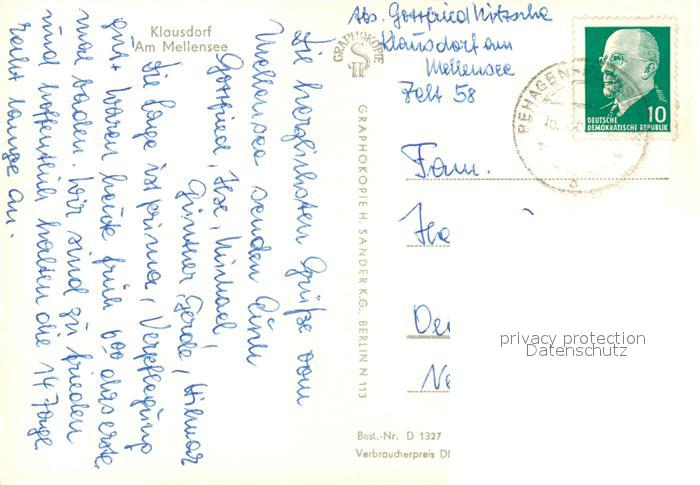 Klausdorf
Am Mellensee
Abs. Gottfried Nitzsche
Klausdorf am
Mellensee
Zelt 58
GRAPHOKOPIE
H S
REHAGEN-
10
DEUTSCHE
DEMOKRATISCHE REPUBLIK
Fam.
Die herzlichsten Grüße vom
Mellensee senden Euch
Gottfried, Ilse, Michael,
Günther, Gerda, Hilmar
Die Lage ist prima, Verpflegung
gut. Waren heute früh 6⁰⁰ das erste
mal baden. Wir sind zufrieden
und hoffentlich halten die 14 Tage
recht lange an.
GRAPHOKOPIE H. SANDER K.G., BERLIN N 113
privacy protection
Datenschutz
Best.-Nr. D 1327
Verbraucherpreis